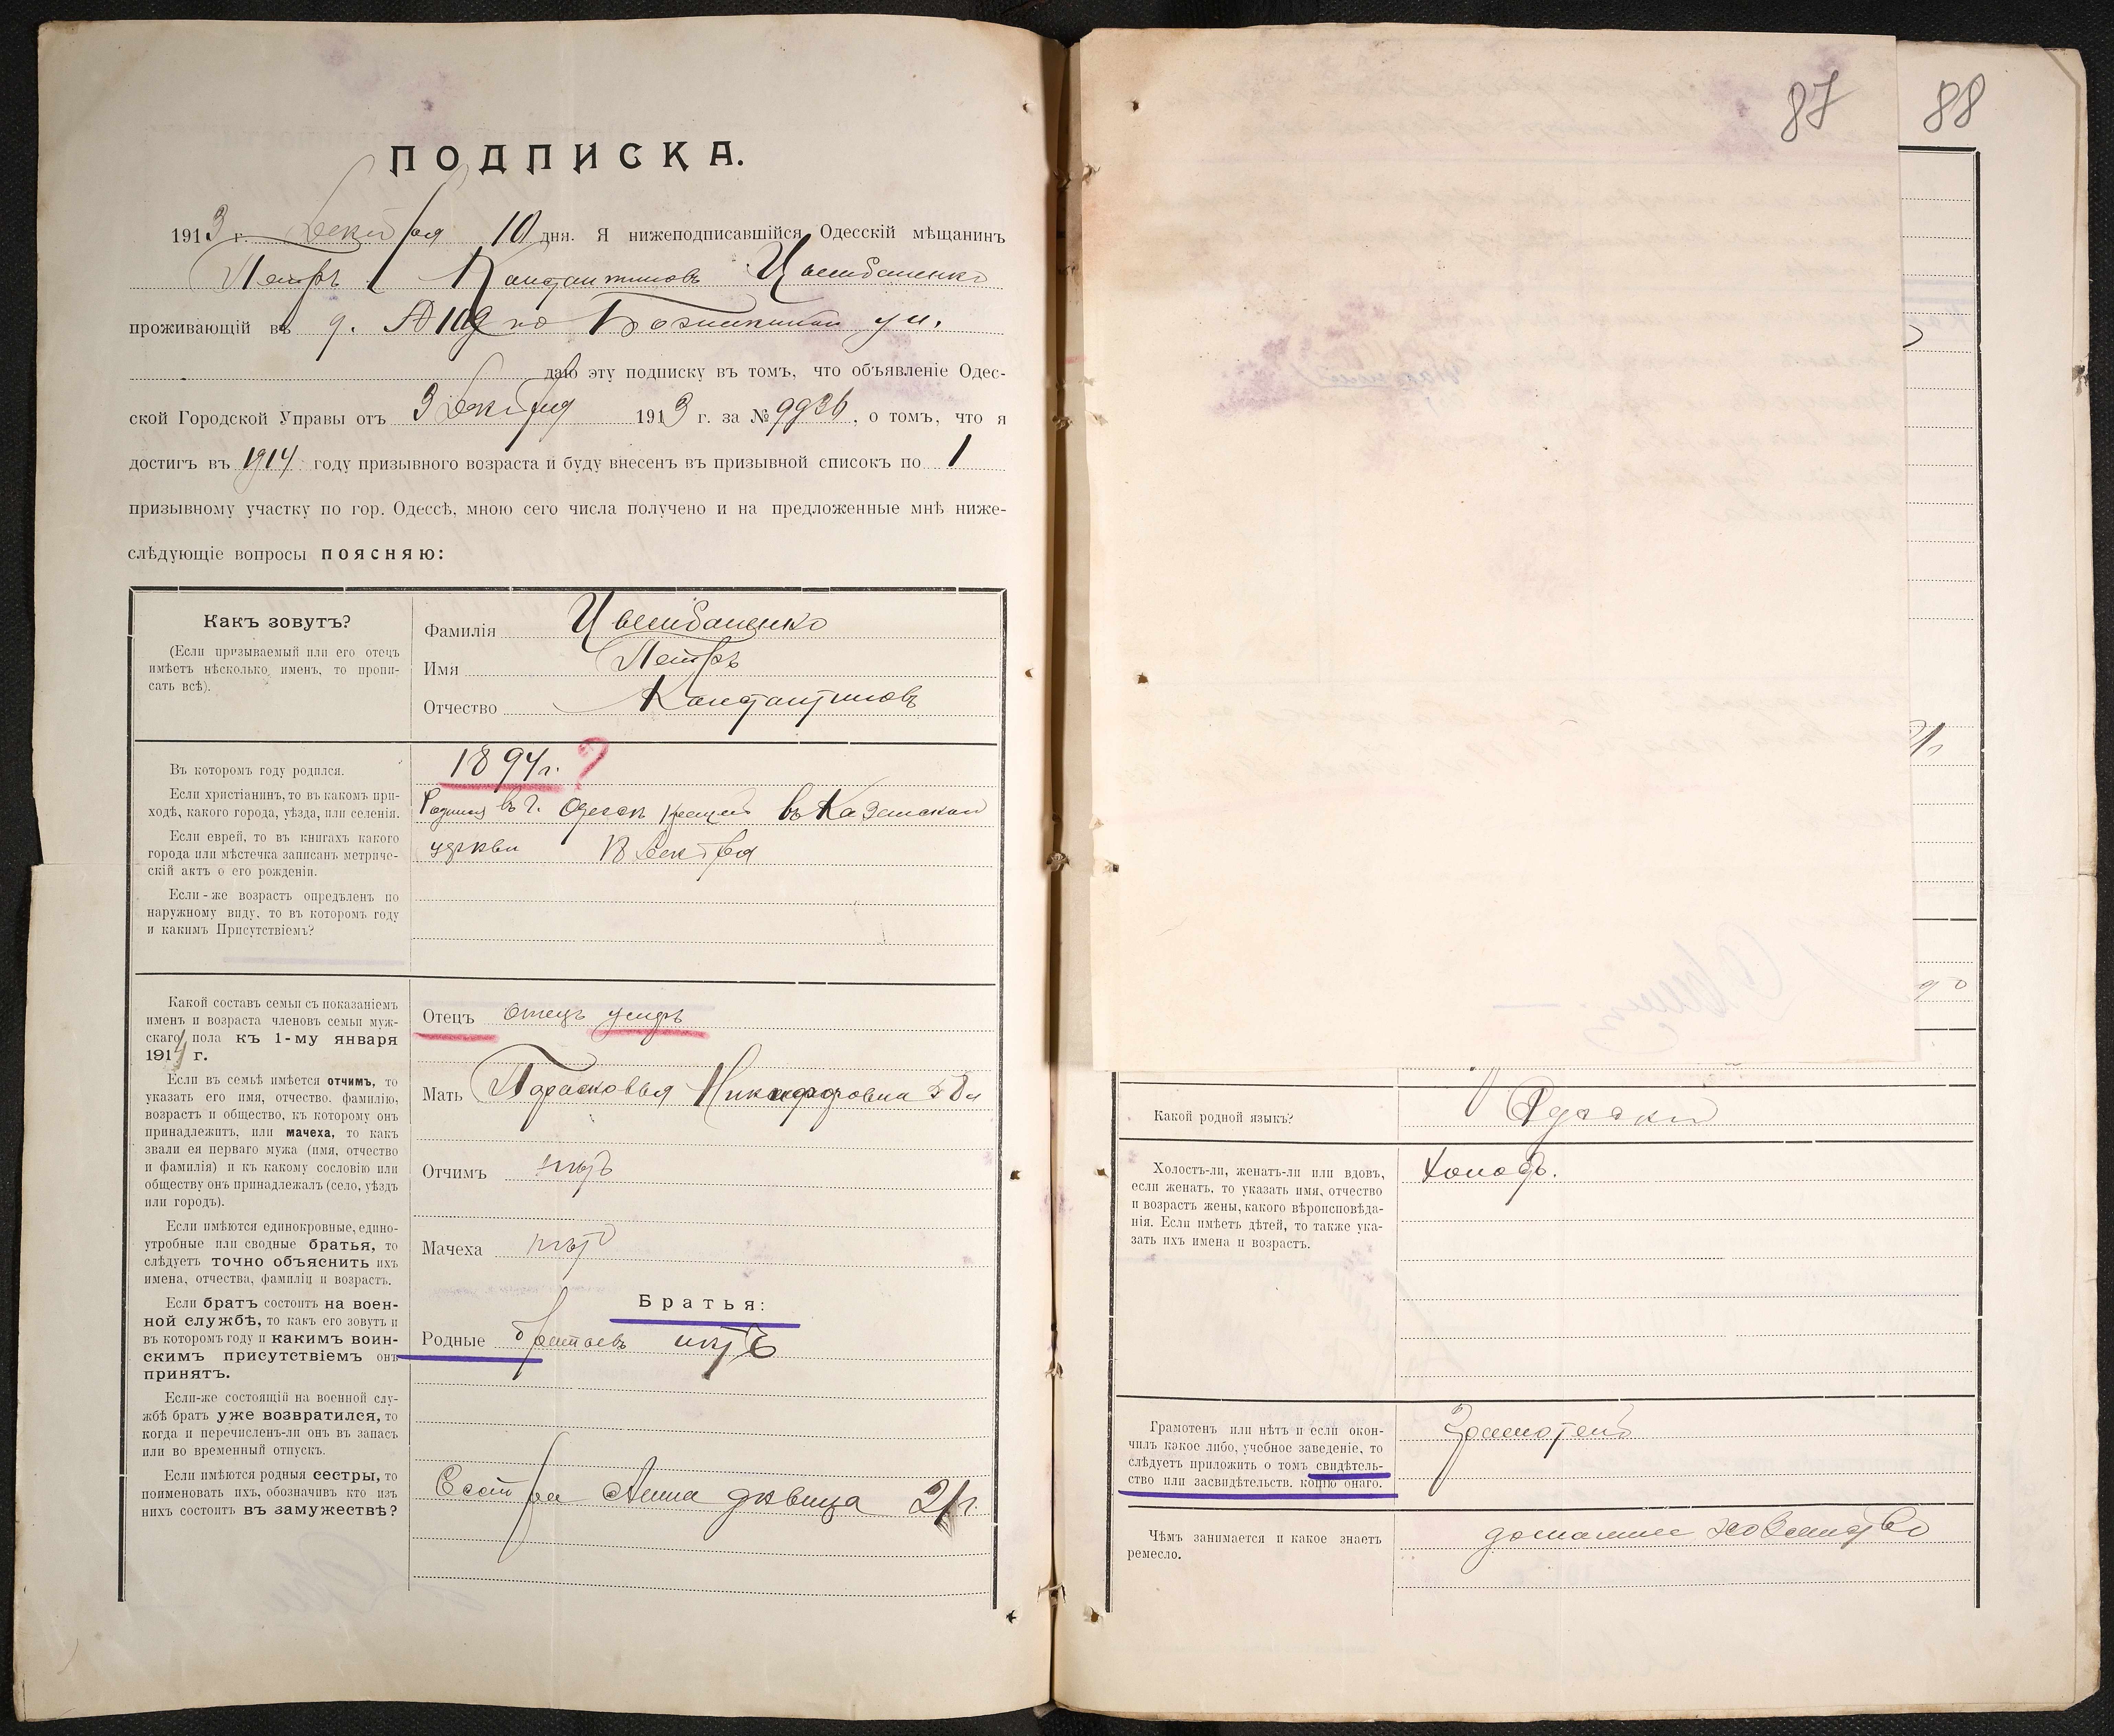 ПОДПИСКА.
1913 г. Декабря 10 дня. Я нижеподписавшійся Одесскій мѣщанинъ
Петръ Константиновъ
проживающій въ д. № по ул.
даю эту подписку въ томъ, что объявленіе Одес-
ской Городской Управы отъ 3 Декабря 1913 г. за № 9936, о томъ, что я
достигъ въ 1914 году призывного возраста и буду внесенъ въ призывной списокъ по 1
призывному участку по гор. Одессѣ, мною сего числа получено и на предложенные мнѣ ниже-
слѣдующіе вопросы поясняю:
Какъ зовутъ?
(Если призываемый или его отецъ
имѣетъ нѣсколько именъ, то пропи-
сать всѣ).
Фамилія
Имя Петръ
Отчество Константиновъ
Въ которомъ году родился.
Если христіанинъ, то въ какомъ при-
ходѣ, какого города, уѣзда, или селенія.
Если еврей, то въ книгахъ какого
города или мѣстечка записанъ метриче-
скій актъ о его рожденіи.
Если-же возрастъ опредѣленъ по
наружному виду, то въ которомъ году
и какимъ Присутствіемъ?
1894г. ?
Родился въ г. Одессѣ крещенъ въ Казанской
церкви Декабря
Какой составъ семьи съ показаніемъ
именъ и возраста членовъ семьи муж-
скаго пола къ 1-му января
1914 г.
Если въ семьѣ имѣется отчимъ, то
указать его имя, отчество. фамилію,
возрастъ и общество, къ которому онъ
принадлежитъ, или мачеха, то какъ
звали ея перваго мужа (имя, отчество
и фамилія) и къ какому сословію или
обществу онъ принадлежалъ (село, уѣздъ
или городъ).
Если имѣются единокровные, едино-
утробные или сводные братья, то
слѣдуетъ точно объяснить ихъ
имена, отчества, фамиліи и возрастъ.
Если братъ состоитъ на воен-
ной службѣ, то какъ его зовутъ и
въ которомъ году и какимъ воин-
скимъ присутствіемъ онъ
принятъ.
Если-же состоящій на военной слу-
жбѣ братъ уже возвратился, то
когда и перечисленъ-ли онъ въ запасъ
или во временный отпускъ.
Если имѣются родныя сестры, то
поименовать ихъ, обозначивъ кто изъ
нихъ состоитъ въ замужествѣ?
Отецъ отецъ умеръ
Мать Парасковья Никифоровна
Отчимъ нѣтъ
Мачеха нѣтъ
Братья:
Родные братьевъ нѣтъ
Сестра Анна дѣвица 21 г.
87
88
Какой родной языкъ?
Холостъ-ли, женатъ-ли или вдовъ,
если женатъ, то указать имя, отчество
и возрастъ жены, какого вѣроисповѣда-
нія. Если имѣетъ дѣтей, то также ука-
зать ихъ имена и возрастъ.
Холостъ.
Грамотенъ или нѣтъ и если окон-
чилъ какое либо, учебное заведеніе, то
слѣдуетъ приложить о томъ свидѣтель-
ство или засвидѣтельств. копію онаго.
Грамотенъ
Чѣмъ занимается и какое знаетъ
ремесло.
домашнее хозяйство